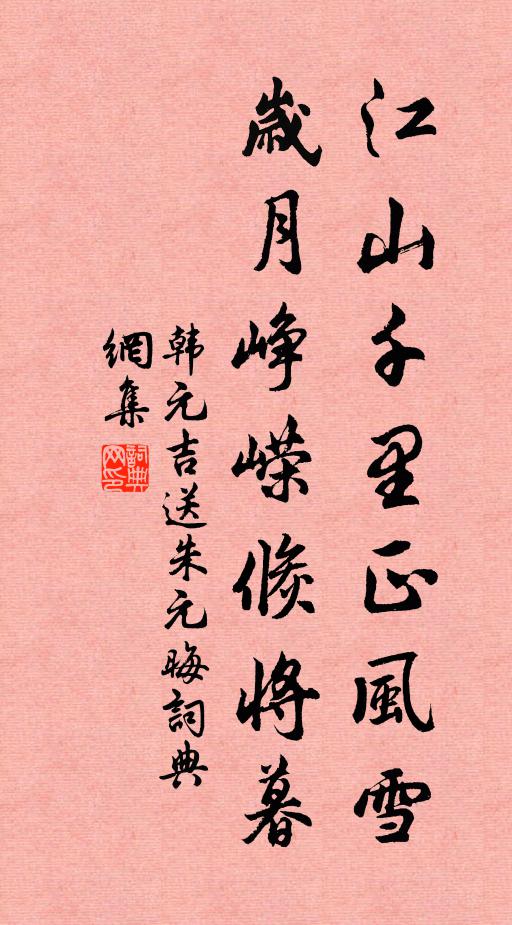 江山千里正風雪
歲月峥嶸倐將暮
韩元吉送朱元晦詞典
網集
詞典
网印